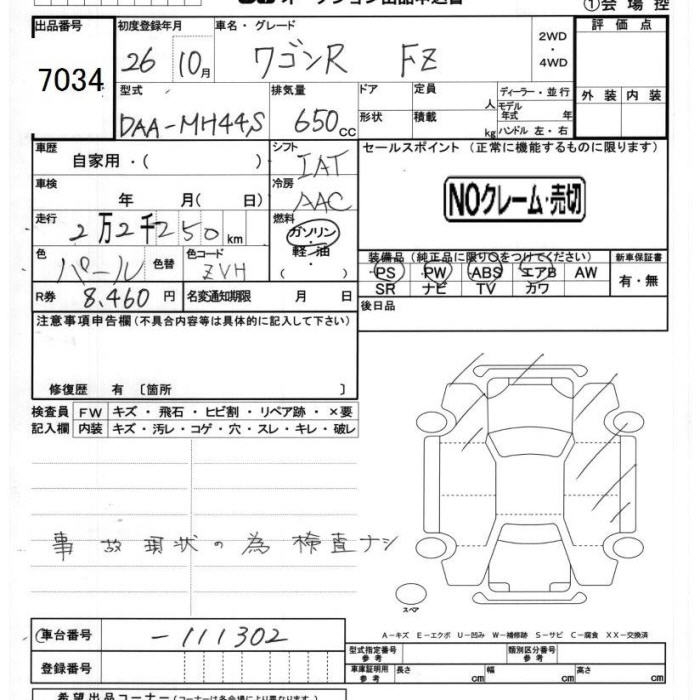 オークション出品申込書
①会場控
出品番号 初度登録年月 車名・グレード 評価点
7034 26 10月 ワゴンR FZ 2WD・4WD
型式 排気量 ドア 定員 人 ディーラー・並行 外装 内装
DAA-MH44S 650cc 形状 積載 kg モデル年式 年
ハンドル 左・右
車歴 シフト セールスポイント(正常に機能するものに限ります)
自家用・( ) IAT
車検 冷房 NOクレーム・売切
年 月( 日) AAC
走行 燃料
2万2千250km ガソリン・軽油
色 色替 色コード ( ) 装備品(純正品に限り○をつけてください) 新車保証書
パール ZVH PS PW ABS エアB AW 有・無
SR ナビ TV カワ
R券 8,460円 名変通知期限 月 日 後日品
注意事項申告欄(不具合内容等は具体的に記入して下さい)
修復歴 有〔箇所 〕
検査員 FW キズ・飛石・ヒビ割・リペア跡・×要
記入欄 内装 キズ・汚レ・コゲ・穴・スレ・キレ・破レ
事故現状の為検査ナシ
スペア
A-キズ E-エクボ U-凹み W-補修跡 S-サビ C-腐食 XX-交換済
車台番号 -111302
型式指定番号 参考 類別区分番号 参考
登録番号 車庫証明用 参考 長さ cm 幅 cm 高さ cm
希望出品コーナー(コーナーは各会場により異なります)